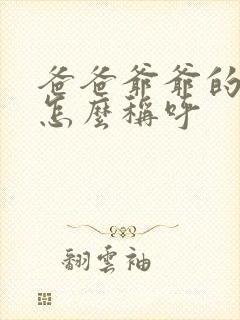 爸爸爺爺的
怎麼稱呼
翻雲袖